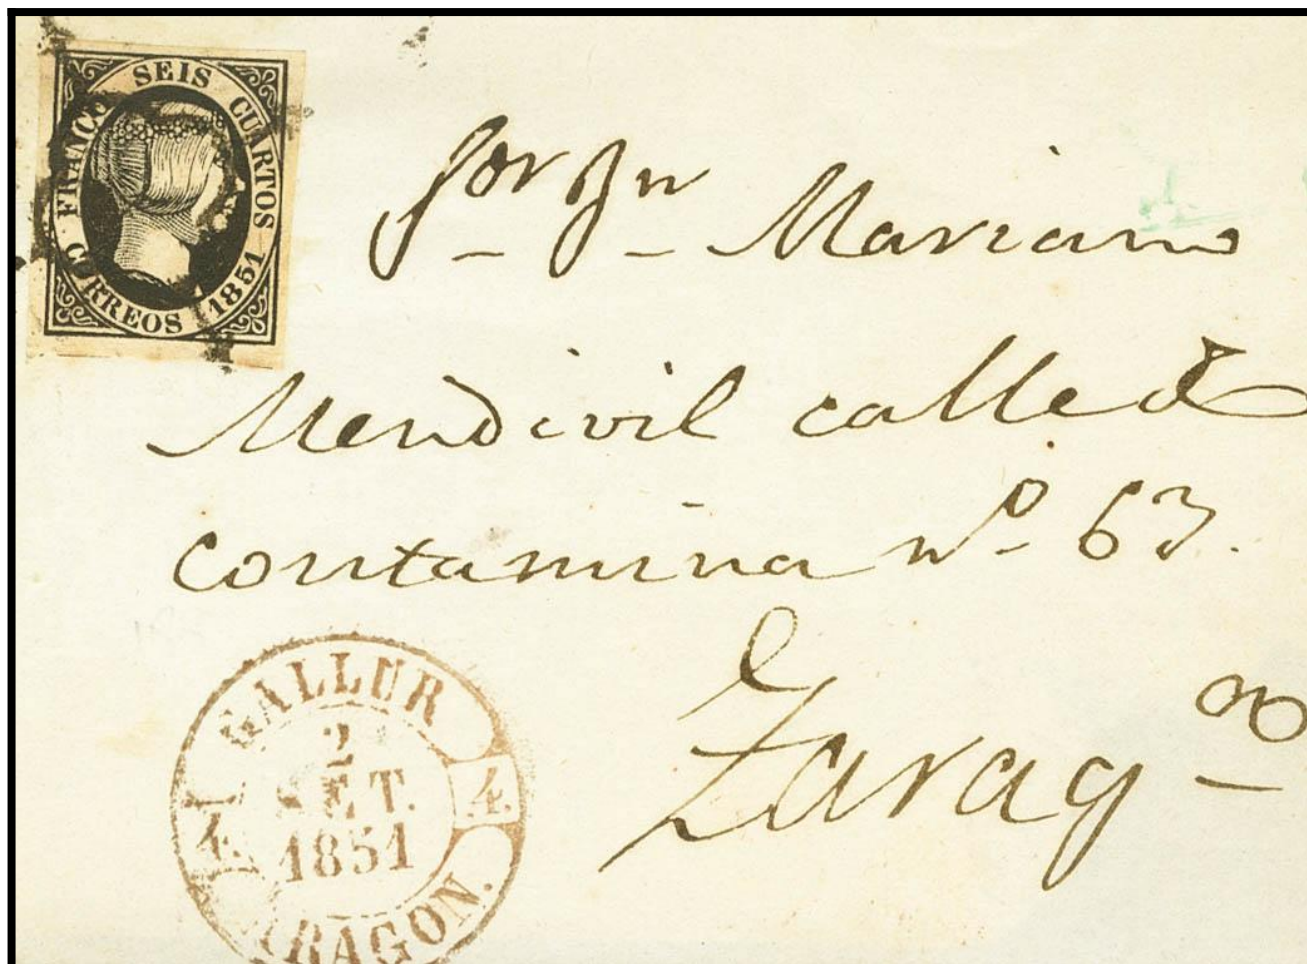 FRANCO SEIS CUARTOS
CORREOS 1851
Sor Dn Mariano
Mendivil calle de
contamina nº 63.
Zarag
GALLUR
2
SET.
1851
4. 4.
ARAGON.